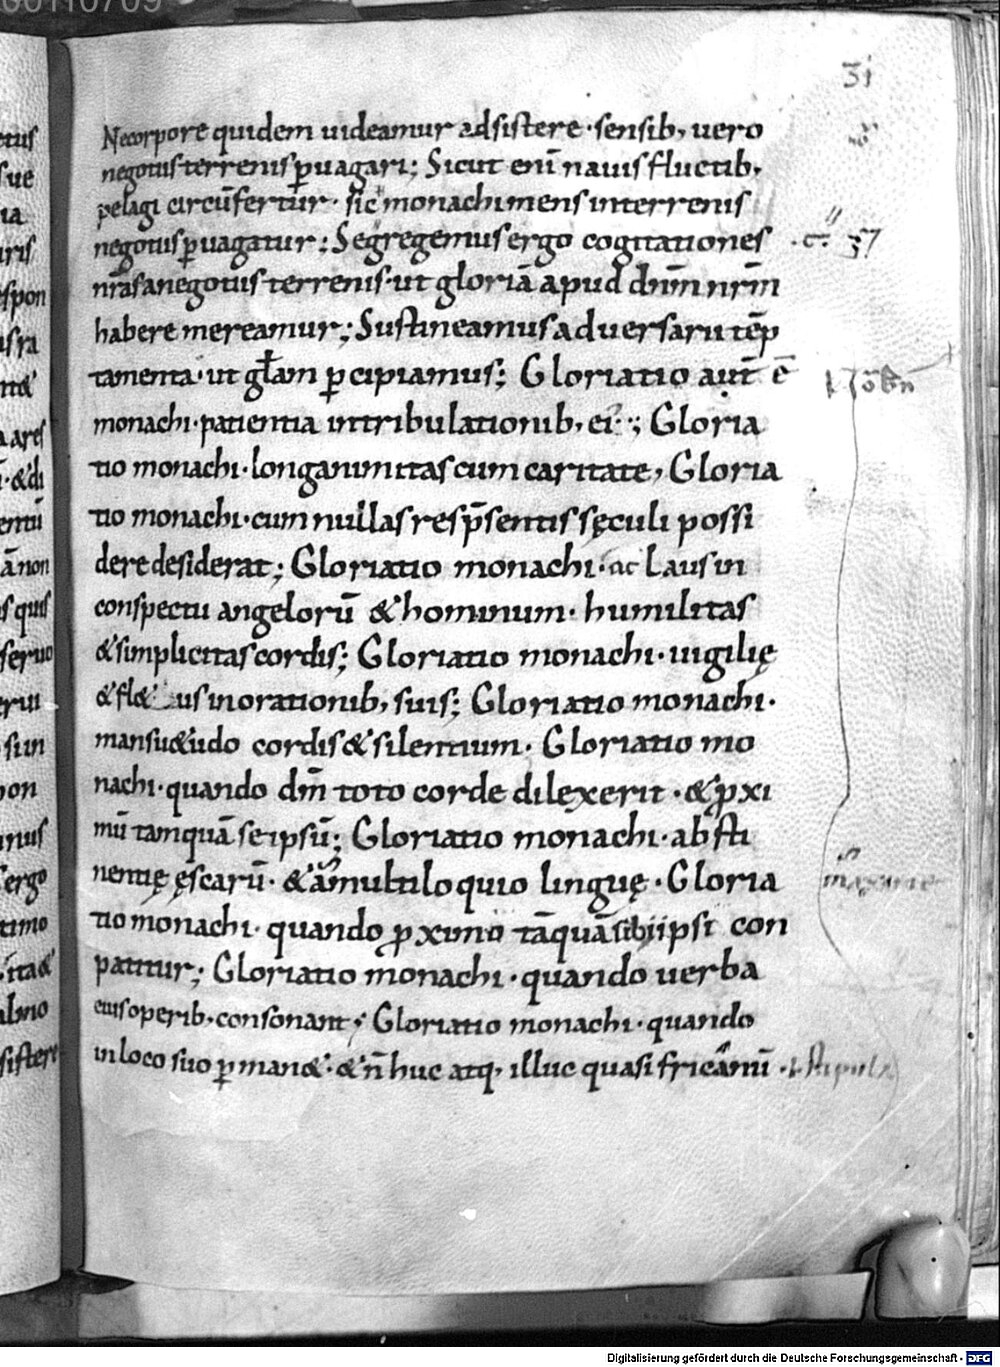 31
Necorpore quidem uideamur adsistere · sensib; uero
negotiis terrenis ꝑuagari; Sicut eni̅ nauis fluctib;
pelagi circu̅fertur · sic monachi mens interrenis
negotiis ꝑuagatur; Segregemus ergo cogitationes · c̅· 37
nr̅as anegotiis terrenis · ut gloria̅ apud dn̅m nr̅m
habere mereamur; Sustineamus aduersarii te̅p
tamenta · ut gl̅am ꝑcipiamus; Gloriatio aut̅ e̅
monachi · patientia intribulationib; ei·; Gloria
tio monachi · longanimitas cum caritate, Gloria
tio monachi · cum nullas res p̅sentis sęculi possi
dere desiderat; Gloriatio monachi · ac Laus in
conspectu angeloru̅ & hominum · humilitas
& simplicitas cordis; Gloriatio monachi · uigilię
& fl& us inorationib; suis; Gloriatio monachi ·
mansu&udo cordis & silentium · Gloriatio mo
nachi · quando dm̅ toto corde dilexerit · & ꝓxi
mu̅ tamqua̅ se ipsu̅; Gloriatio monachi · absti
nentię ęscaru̅ · & a̅multiloquio linguę · Gloria
maxime
tio monachi · quando ꝓximo ta̅qua̅ sibi ipsi con
patitur; Gloriatio monachi · quando uerba
eius operib; consonant; Gloriatio monachi · quando
in loco suo ꝑman& · & n̅ huc atq; illuc quasi fricamu̅ · ł stipula
Digitalisierung gefördert durch die Deutsche Forschungsgemeinschaft - DFG